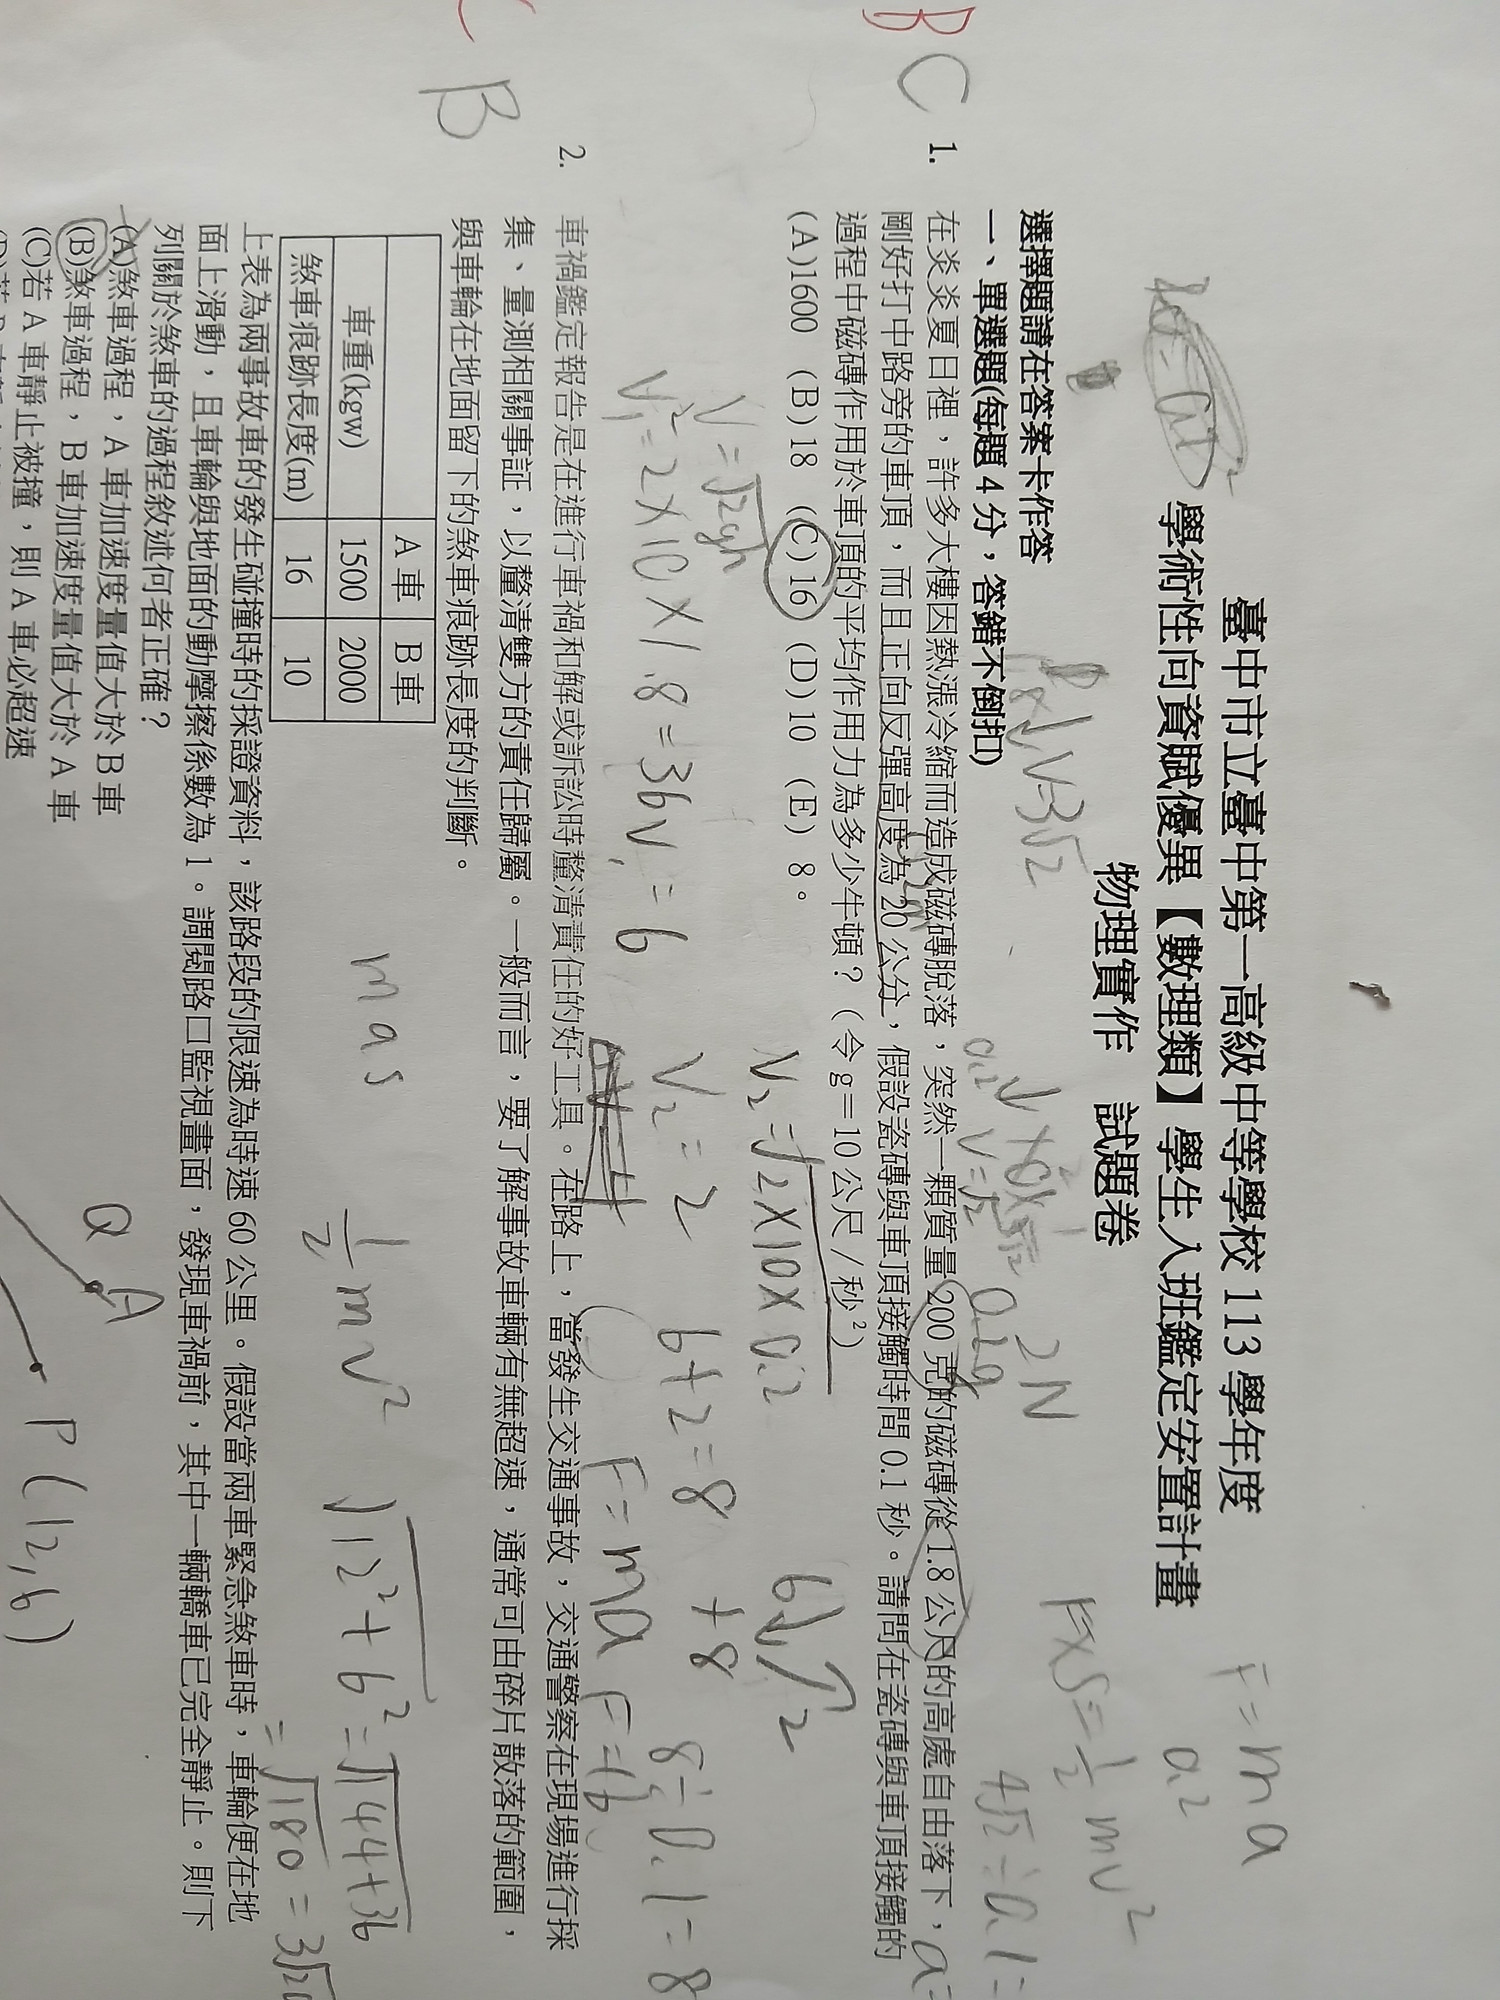 臺中市立臺中第一高級中等學校 113 學年度
學術性向資賦優異【數理類】學生入班鑑定安置計畫
物理實作　試題卷
F=ma
F×S=1/2 mv²
2N
選擇題請在答案卡作答
一、單選題(每題 4 分，答錯不倒扣)
B
C
1. 在炎炎夏日裡，許多大樓因熱漲冷縮而造成磁磚脫落，突然一顆質量 200 克的磁磚從 1.8 公尺的高處自由落下，
剛好打中路旁的車頂，而且正向反彈高度為 20 公分，假設瓷磚與車頂接觸時間 0.1 秒。請問在瓷磚與車頂接觸的
過程中磁磚作用於車頂的平均作用力為多少牛頓？（令 g＝10 公尺/秒²）
(A)1600 (B)18 (C)16 (D)10 (E) 8。
V=√2gh
V₁²=2×10×1.8=36 V₁=6
V₂=√2×10×0.2
V₂=2
6+2=8
8÷0.1=8
F=ma
C
B
2. 車禍鑑定報告是在進行車禍和解或訴訟時釐清責任的好工具。在路上，當發生交通事故，交通警察在現場進行採
集、量測相關事証，以釐清雙方的責任歸屬。一般而言，要了解事故車輛有無超速，通常可由碎片散落的範圍，
與車輪在地面留下的煞車痕跡長度的判斷。
A 車 B 車
車重(kgw) 1500 2000
煞車痕跡長度(m) 16 10
mas
1/2 mv²
√12²+6²=√144+36
=√180
上表為兩事故車的發生碰撞時的採證資料，該路段的限速為時速 60 公里。假設當兩車緊急煞車時，車輪便在地
面上滑動，且車輪與地面的動摩擦係數為 1。調閱路口監視畫面，發現車禍前，其中一輛轎車已完全靜止。則下
列關於煞車的過程敘述何者正確？
(A)煞車過程，A 車加速度量值大於 B 車
(B)煞車過程，B 車加速度量值大於 A 車
(C)若 A 車靜止被撞，則 A 車必超速
Q A
P(12,6)